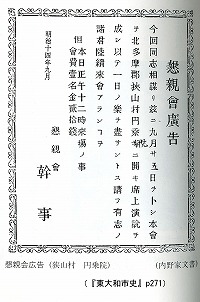 懇親會廣告
今回同志相謀リ茲ニ九月廿五日ヲトシ本會
ヲ北多摩郡狹山村円乗院ニ開キ席上演説ヲ
成シ以テ一日ノ樂ヲ盡サントス請フ有志ノ
諸君陸續來會アランコヲ
但シ正午十二時來場ノ事
會費壹名金貳拾錢
明治十四年九月
懇親會
幹事
懇親会広告（狭山村　円乗院）
（内野家文書）
（『東大和市史』p271）